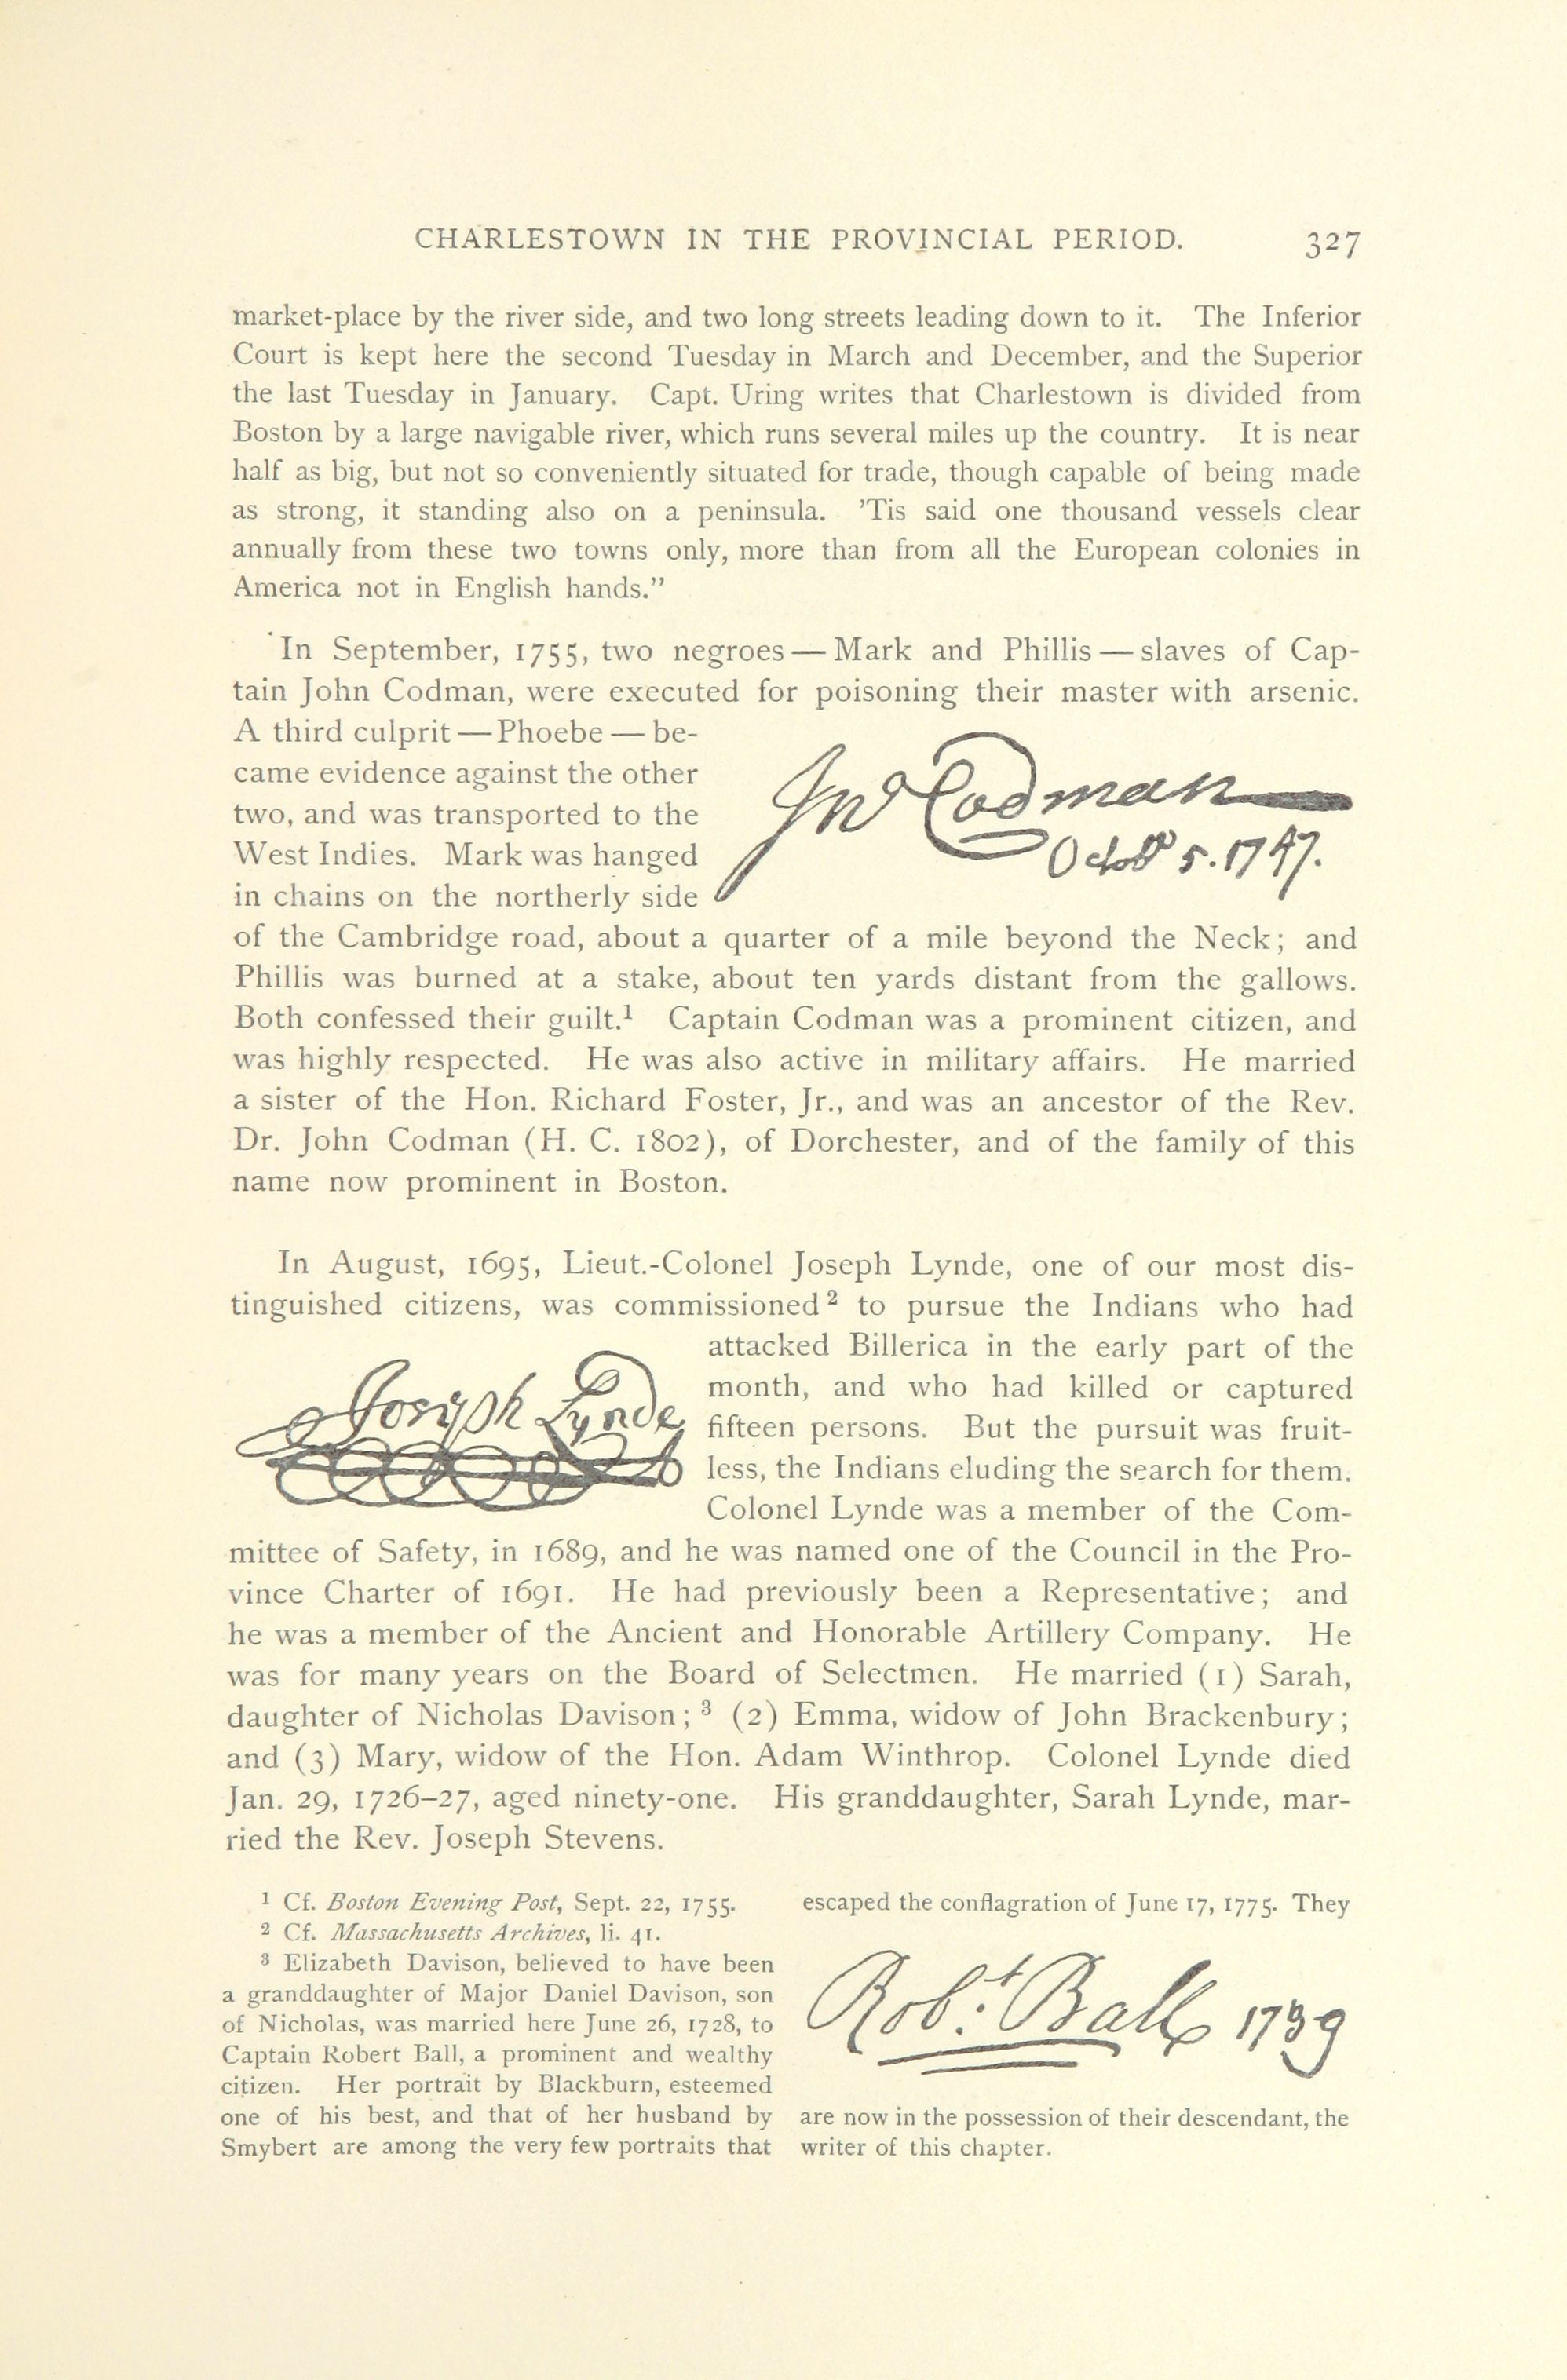 CHARLESTOWN IN THE PROVINCIAL PERIOD. 327
market-place by the river side, and two long streets leading down to it. The Inferior
Court is kept here the second Tuesday in March and December, and the Superior
the last Tuesday in January. Capt. Uring writes that Charlestown is divided from
Boston by a large navigable river, which runs several miles up the country. It is near
half as big, but not so conveniently situated for trade, though capable of being made
as strong, it standing also on a peninsula. 'Tis said one thousand vessels clear
annually from these two towns only, more than from all the European colonies in
America not in English hands."
In September, 1755, two negroes — Mark and Phillis — slaves of Cap-
tain John Codman, were executed for poisoning their master with arsenic.
A third culprit — Phoebe — be-
came evidence against the other
two, and was transported to the
West Indies. Mark was hanged
in chains on the northerly side
Jno Codman
Octobr 5. 1747.
of the Cambridge road, about a quarter of a mile beyond the Neck; and
Phillis was burned at a stake, about ten yards distant from the gallows.
Both confessed their guilt.¹ Captain Codman was a prominent citizen, and
was highly respected. He was also active in military affairs. He married
a sister of the Hon. Richard Foster, Jr., and was an ancestor of the Rev.
Dr. John Codman (H. C. 1802), of Dorchester, and of the family of this
name now prominent in Boston.
In August, 1695, Lieut.-Colonel Joseph Lynde, one of our most dis-
tinguished citizens, was commissioned² to pursue the Indians who had
Joseph Lynde
attacked Billerica in the early part of the
month, and who had killed or captured
fifteen persons. But the pursuit was fruit-
less, the Indians eluding the search for them.
Colonel Lynde was a member of the Com-
mittee of Safety, in 1689, and he was named one of the Council in the Pro-
vince Charter of 1691. He had previously been a Representative; and
he was a member of the Ancient and Honorable Artillery Company. He
was for many years on the Board of Selectmen. He married (1) Sarah,
daughter of Nicholas Davison;³ (2) Emma, widow of John Brackenbury;
and (3) Mary, widow of the Hon. Adam Winthrop. Colonel Lynde died
Jan. 29, 1726–27, aged ninety-one. His granddaughter, Sarah Lynde, mar-
ried the Rev. Joseph Stevens.
¹ Cf. Boston Evening Post, Sept. 22, 1755.
² Cf. Massachusetts Archives, li. 41.
³ Elizabeth Davison, believed to have been
a granddaughter of Major Daniel Davison, son
of Nicholas, was married here June 26, 1728, to
Captain Robert Ball, a prominent and wealthy
citizen. Her portrait by Blackburn, esteemed
one of his best, and that of her husband by
Smybert are among the very few portraits that
escaped the conflagration of June 17, 1775. They
Robt. Ball 1739
are now in the possession of their descendant, the
writer of this chapter.